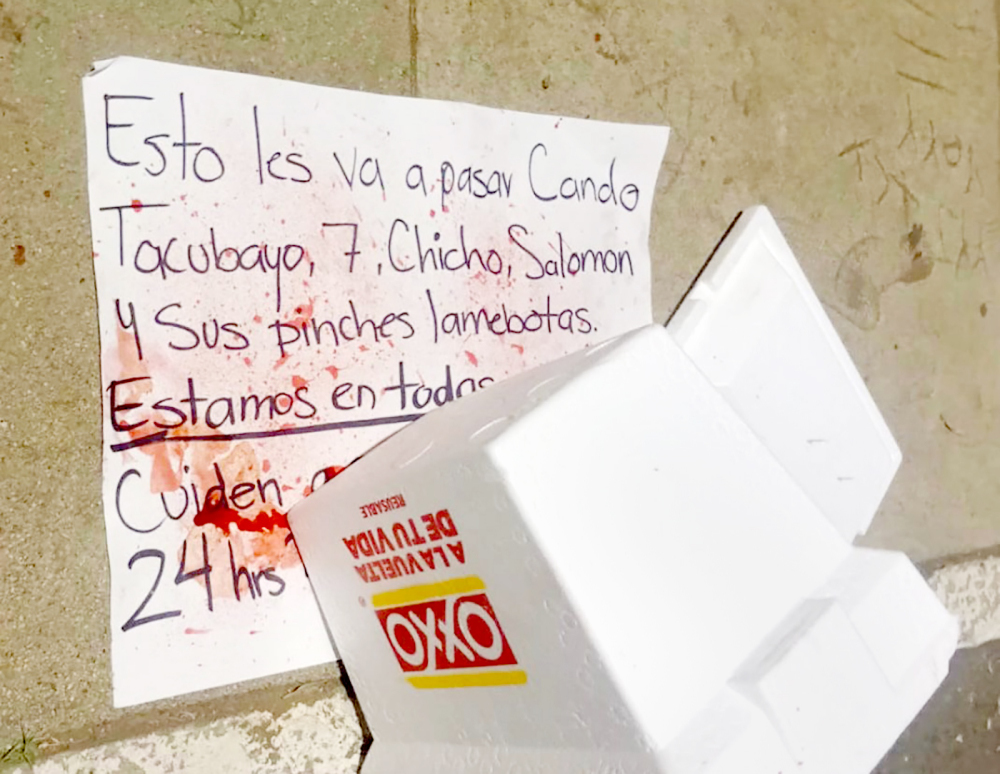 Esto les va a pasar Cando
Tacubayo, 7, Chicho, Salomon
y Sus pinches lamebotas.
Estamos en todas
Cuiden
24 hrs
REUSABLE
A LA VUELTA
DE TU VIDA
OXXO